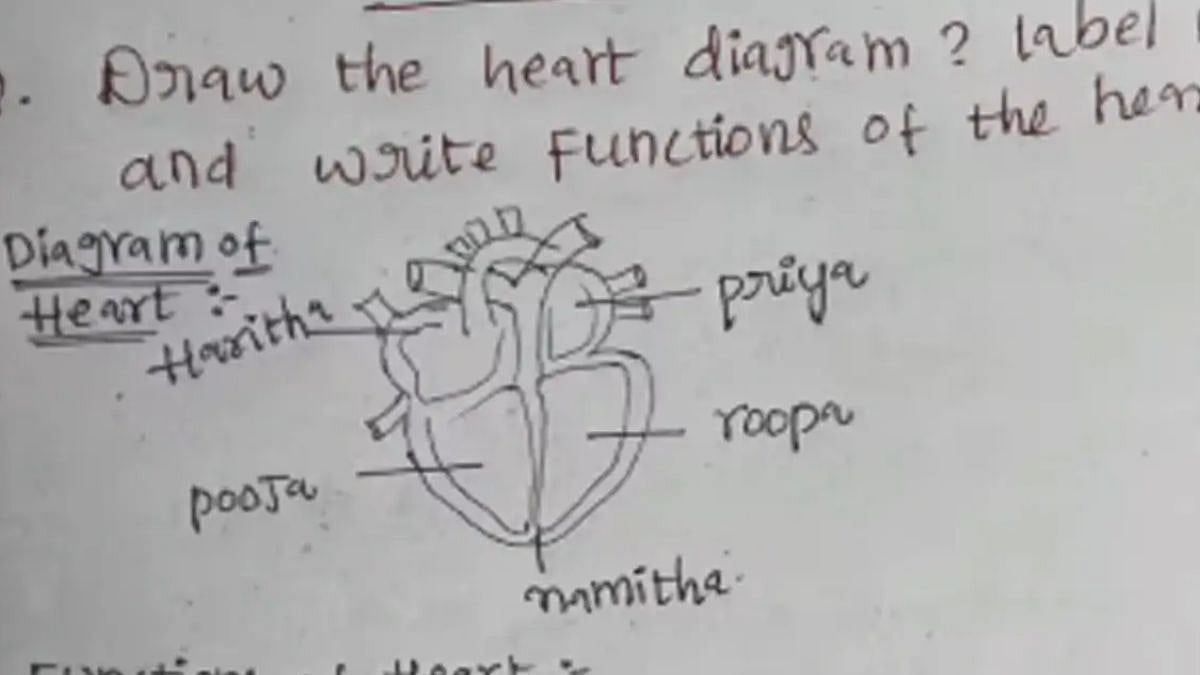 Draw the heart diagram ? label
and write Functions of the
Diagram of
Heart :-
Haritha
priya
roopa
pooJa
namitha.
Heart :-